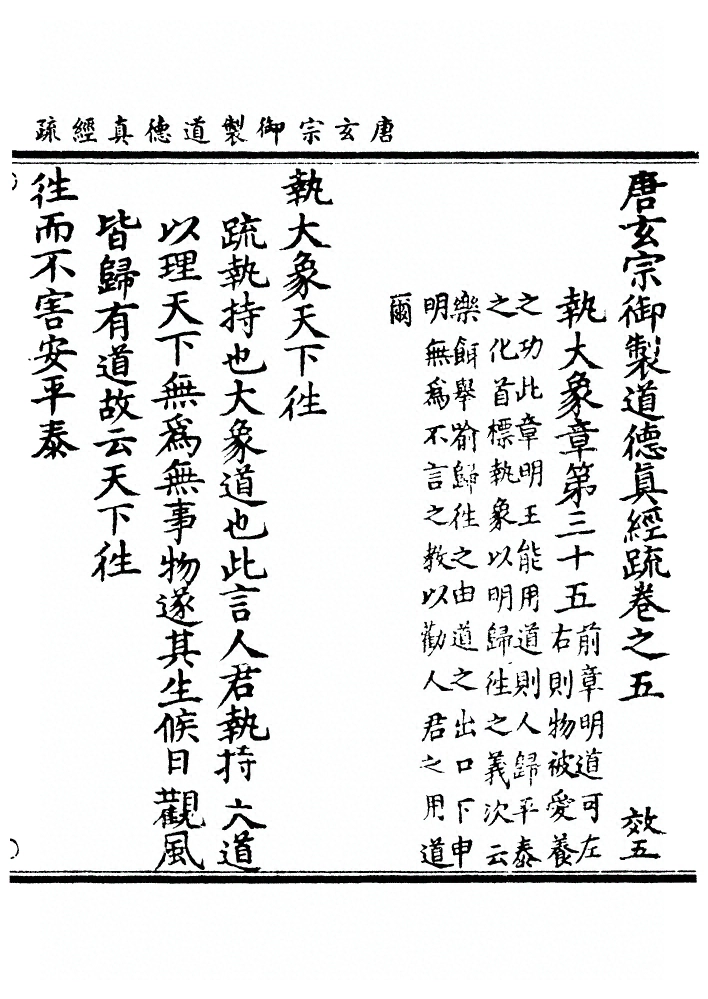 唐玄宗御製道德真經疏
唐玄宗御製道德眞經疏卷之五 效五
執大象章第三十五前章明道可左
右則物被愛養
之功此章明王能用道則人歸平泰
之化首標執象以明歸徃之義次云
樂餌舉喻歸徃之由道之出口下申
明無爲不言之教以勸人君之用道
爾
執大象天下徃
疏執持也大象道也此言人君執持大道
以理天下無爲無事物遂其生候日觀風
皆歸有道故云天下徃
徃而不害安平泰